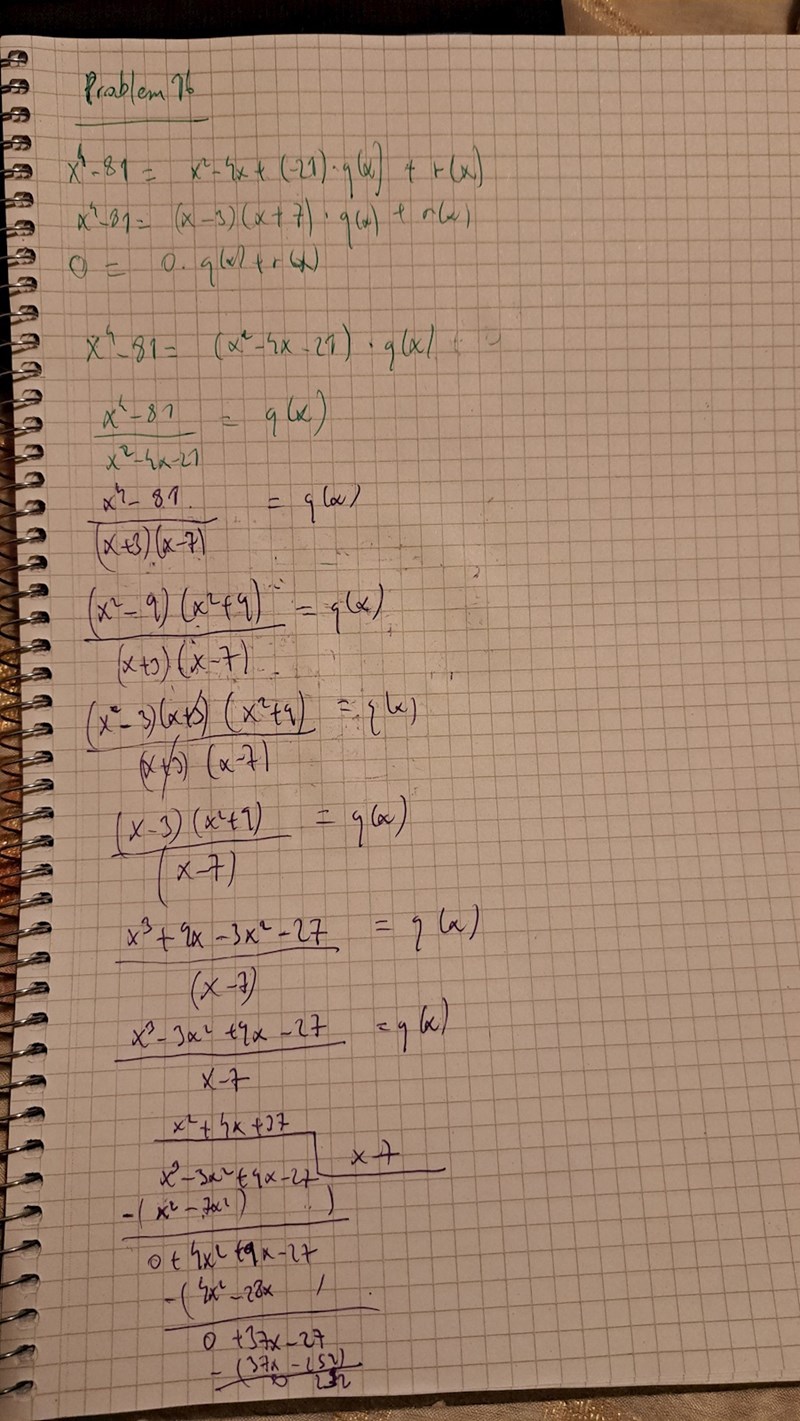 Problem 16
x⁴-81 = x²-4x + (-21)·q(x) + r(x)
x⁴-81 = (x-3)(x+7)·q(x) + r(x)
0 = 0·q(x)+r(x)
x⁴-81 = (x²-4x-21)·q(x)
x⁴-81 = q(x)
x²-4x-21
x⁴-81 = q(x)
(x+3)(x-7)
(x²-9)(x²+9) = q(x)
(x+3)(x-7)
(x²-3)(x+3)(x²+9) = q(x)
(x+3)(x-7)
(x-3)(x²+9) = q(x)
(x-7)
x³+9x-3x²-27 = q(x)
(x-7)
x³-3x²+9x-27 = q(x)
x-7
x²+4x+37
x-7
x³-3x²+9x-27
-(x²-7x²)
0+4x²+9x-27
-(4x²-28x
0+37x-27
-(37x-
0 232